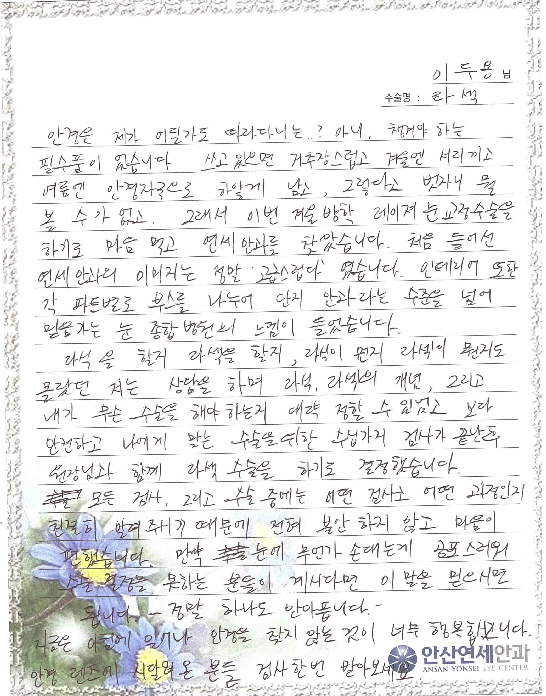 이두용 님
수술명 : 라섹
안경은 제가 어딜가도 따라다니는..? 아니, 챙겨야 하는
필수품이 었습니다 쓰고 있으면 거추장스럽고 겨울엔 서리끼고
여름엔 안경자국으로 하얗게 남고, 그렇다고 벗자니 뭘
볼 수가 없고. 그래서 이번 겨울 방학 레이저 눈교정수술을
하기로 마음 먹고 연세안과를 찾았습니다. 처음 들어선
연세안과의 이미지는 정말 고급스럽다 였습니다. 인테리어 또한
각 파트별로 부스를 나누어 단지 안과라는 수준을 넘어
믿음가는 눈 종합병원의 느낌이 들었습니다.
라식을 할지 라섹을 할지, 라식이 뭔지 라섹이 뭔지도
몰랐던 저는 상담을 하며 라식, 라섹의 개념, 그리고
내가 무슨 수술을 해야 하는지 대략 정할 수 있었고 보다
안전하고 나에게 맞는 수술을 위한 수십가지 검사가 끝난후
원장님과 함께 라섹 수술을 하기로 결정했습니다.
모든 검사, 그리고 수술 중에는 어떤 검사고 어떤 과정인지
친절히 알려주시기 때문에 전혀 불안 하지 않고 마음이
편했습니다. 만약 눈에 무언가 손대는게 공포스러워
수술 결정을 못하는 분들이 계시다면 이 말을 믿으시면
됩니다. - 정말 하나도 안아픕니다. -
지금은 아침에 일어나 안경을 찾지 않는 것이 너무 행복합니다.
안경 렌즈에 시달려온 분들 검사한번 받아보세요
안산연세안과
ANSAN YONSEI EYE CLINIC